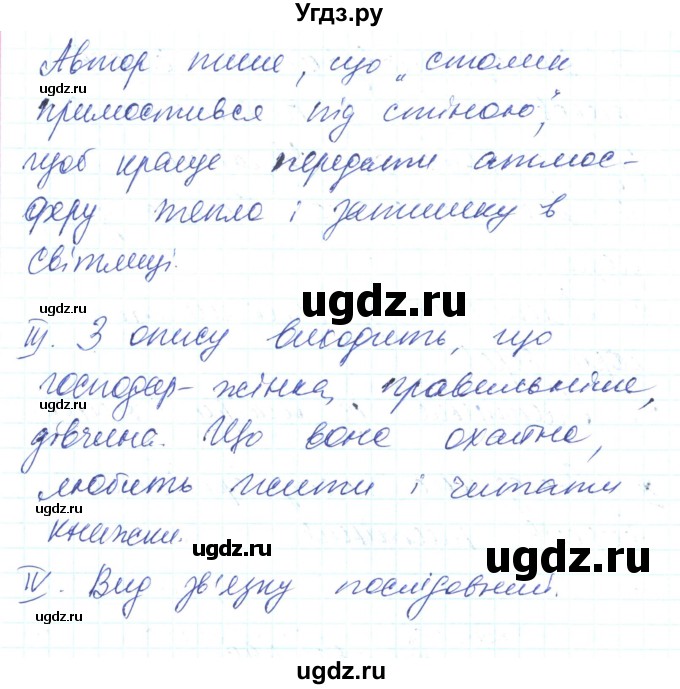 Угдз.ру
Автор пише, що „столик
ugdz.ru
примостився під стіною",
щоб краще передати атмос-
ugdz.ru
феру тепла і затишку в
світлиці.
ugdz.ru
ugdz.ru
III. З опису виходить, що
господар-жінка, правильніше,
ugdz.ru
дівчина. Що вона охайна,
любить шити і читати
ugdz.ru
книжки.
ugdz.ru
ugdz.ru
IV. Вид зв'язку послідовний.
ugdz.ru
ugdz.ru